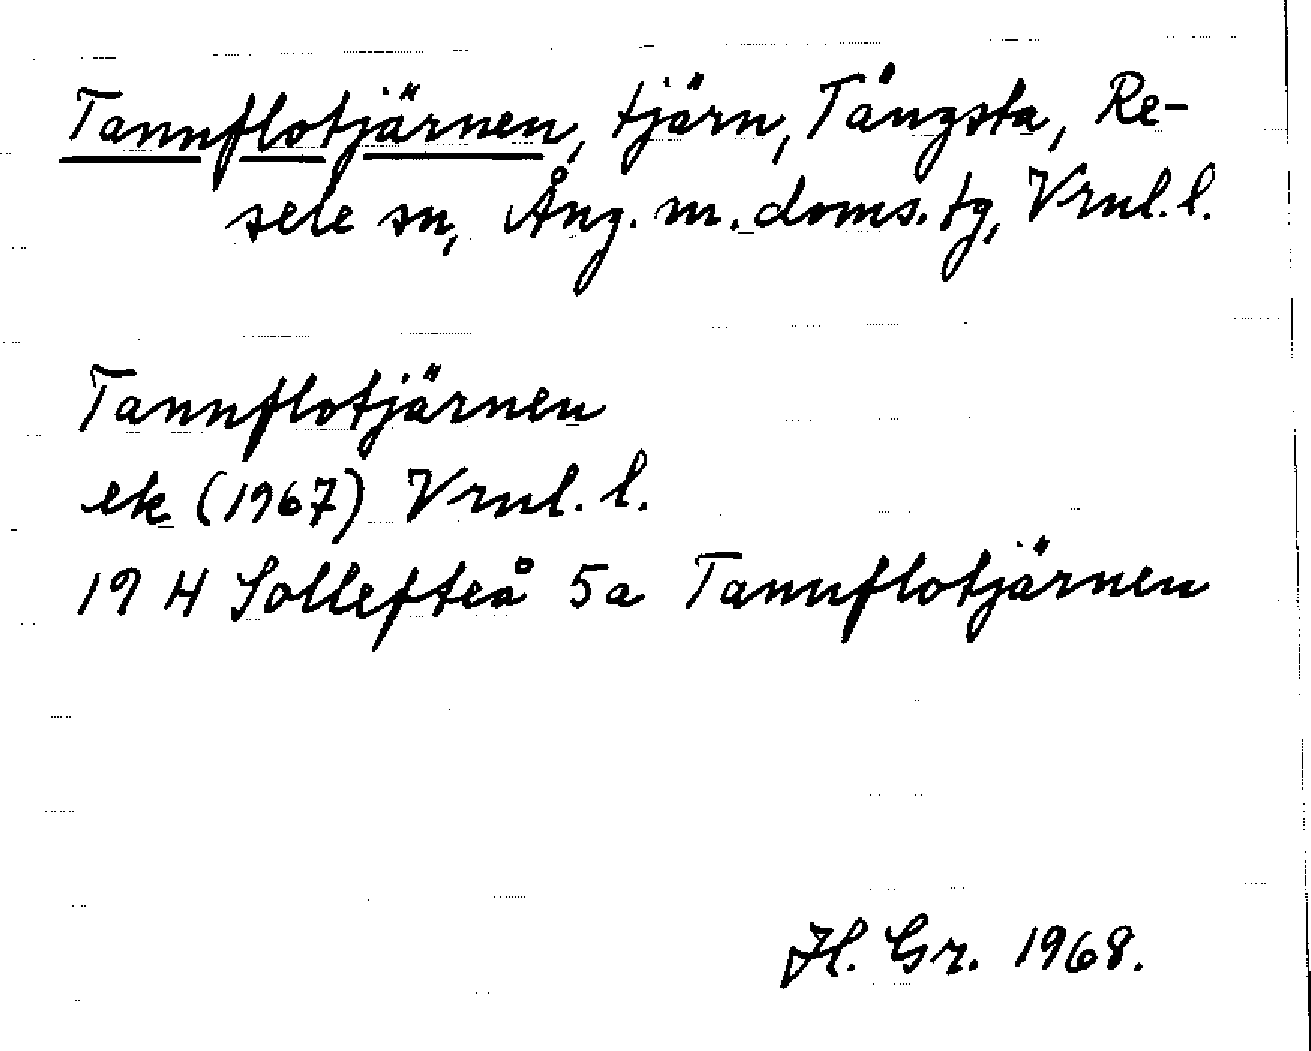 Tannflotjärnen, tjärn, Tängsta, Re-
sele sn, Ång. m. doms. tg, Vrnl. l.
Tannflotjärnen
ek (1967) Vrnl. l.
19 H Sollefteå 5a Tannflotjärnen
H. Gr. 1968.